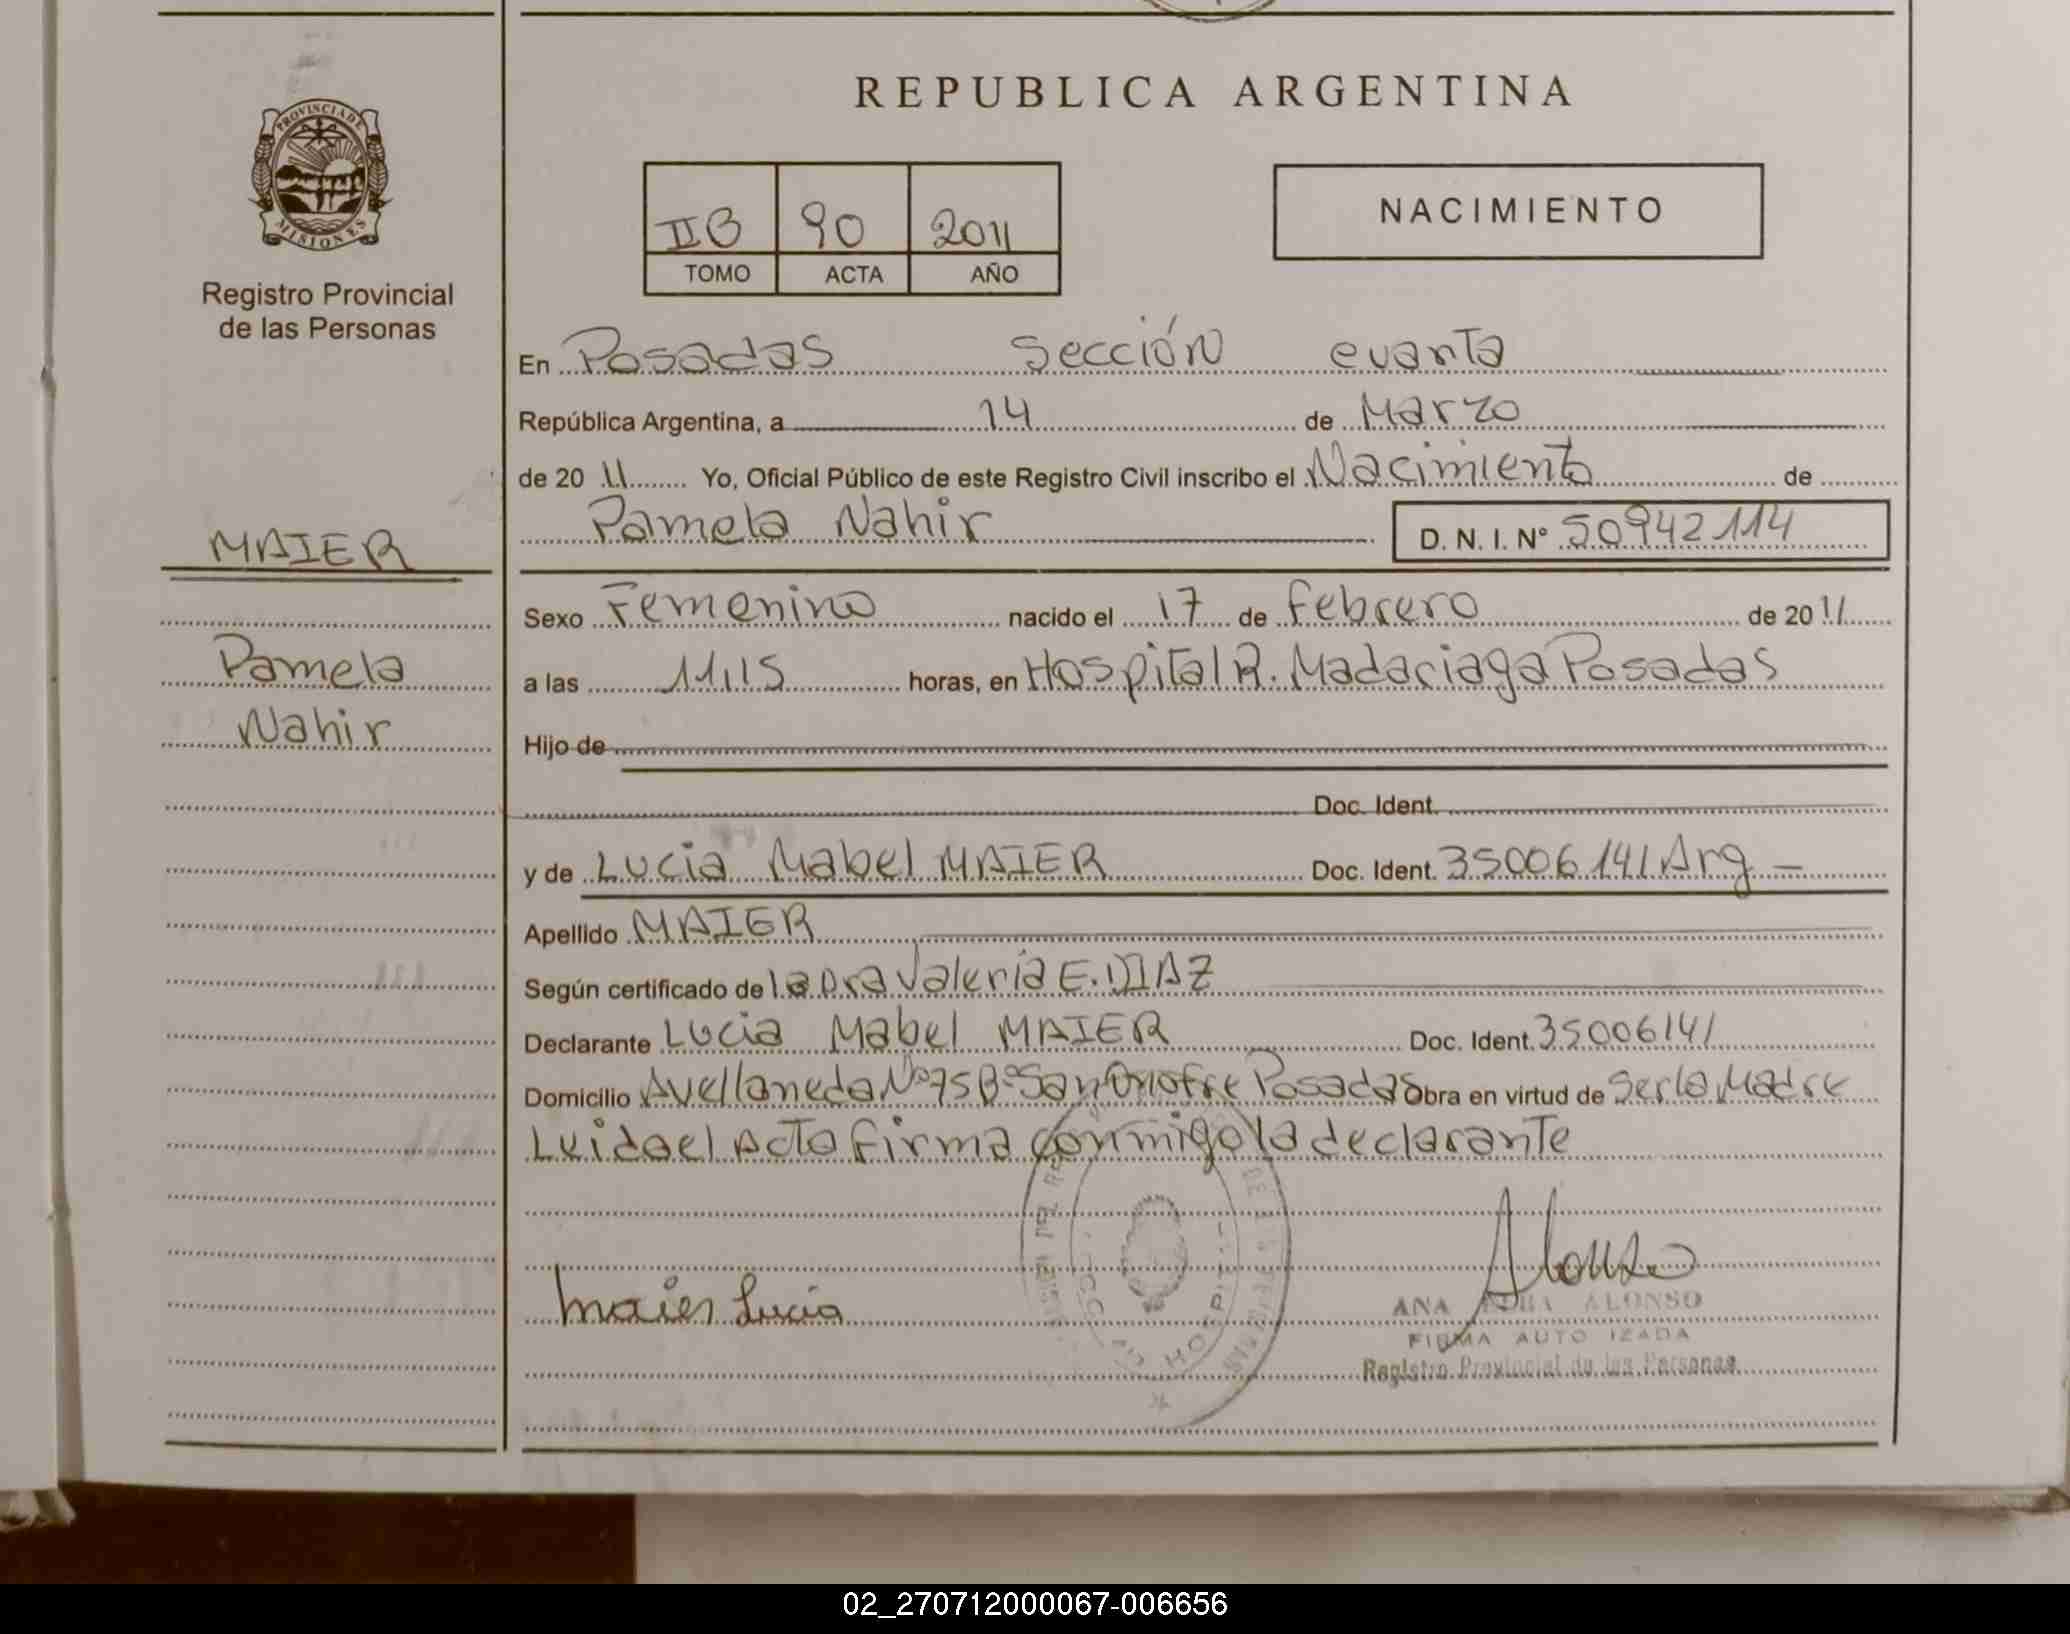 REPUBLICA ARGENTINA
PROVINCIA DE MISIONES
Registro Provincial
de las Personas
IIB 90 2011
TOMO ACTA AÑO
NACIMIENTO
En Posadas Sección cuarta
República Argentina, a 14 de Marzo
de 20 11 Yo, Oficial Público de este Registro Civil inscribo el Nacimiento de
Pamela Nahir D. N. I. Nº 50942114
MAIER
Pamela
Nahir
Sexo Femenino nacido el 17 de Febrero de 20 11
a las 11,15 horas, en Hospital R. Madariaga Posadas
Hijo de
Doc. Ident.
y de Lucia Mabel MAIER Doc. Ident. 35006141 Arg –
Apellido MAIER
Según certificado de la Dra Valeria E. DIAZ
Declarante Lucia Mabel MAIER Doc. Ident. 35006141
Domicilio Avellaneda Nº 75 Bº San Onofre Posadas Obra en virtud de Ser la Madre
Leida el Acta firma conmigo la declarante
Maier Lucia
Alonso
ANA ALONSO
FIRMA AUTO IZADA
Registro Provincial de las Personas
02_270712000067-006656